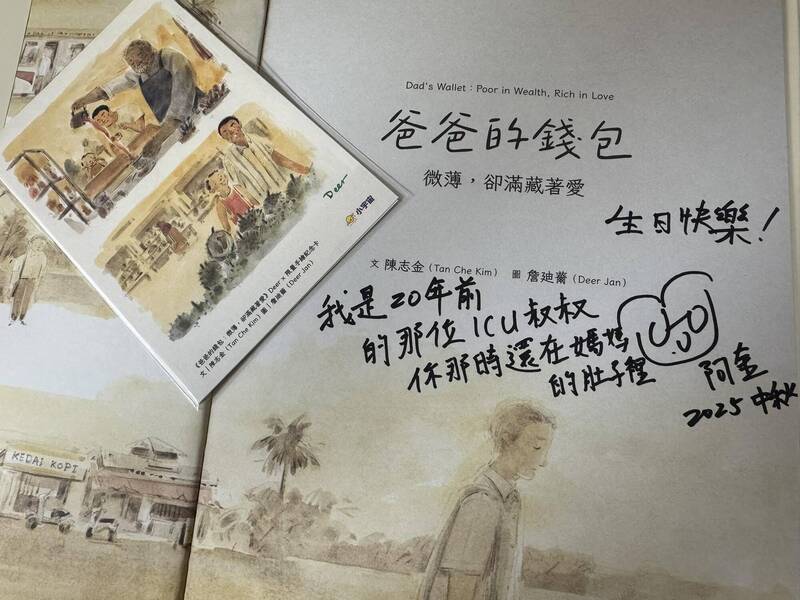 Dad's Wallet：Poor in Wealth, Rich in Love
爸爸的錢包
微薄，卻滿藏著愛
生日快樂！
文 陳志金 (Tan Che Kim) 圖 詹迪薾 (Deer Jan)
我是20年前
的那位ICU叔叔
你那時還在媽媽
的肚子裡
阿金
2025 中秋
Deer
小宇宙
《爸爸的錢包：微薄，卻滿藏著愛》Deer × 限量手繪紀念卡
文｜陳志金 (Tan Che Kim) 圖｜詹迪薾 (Deer Jan)
KEDAI KOPI